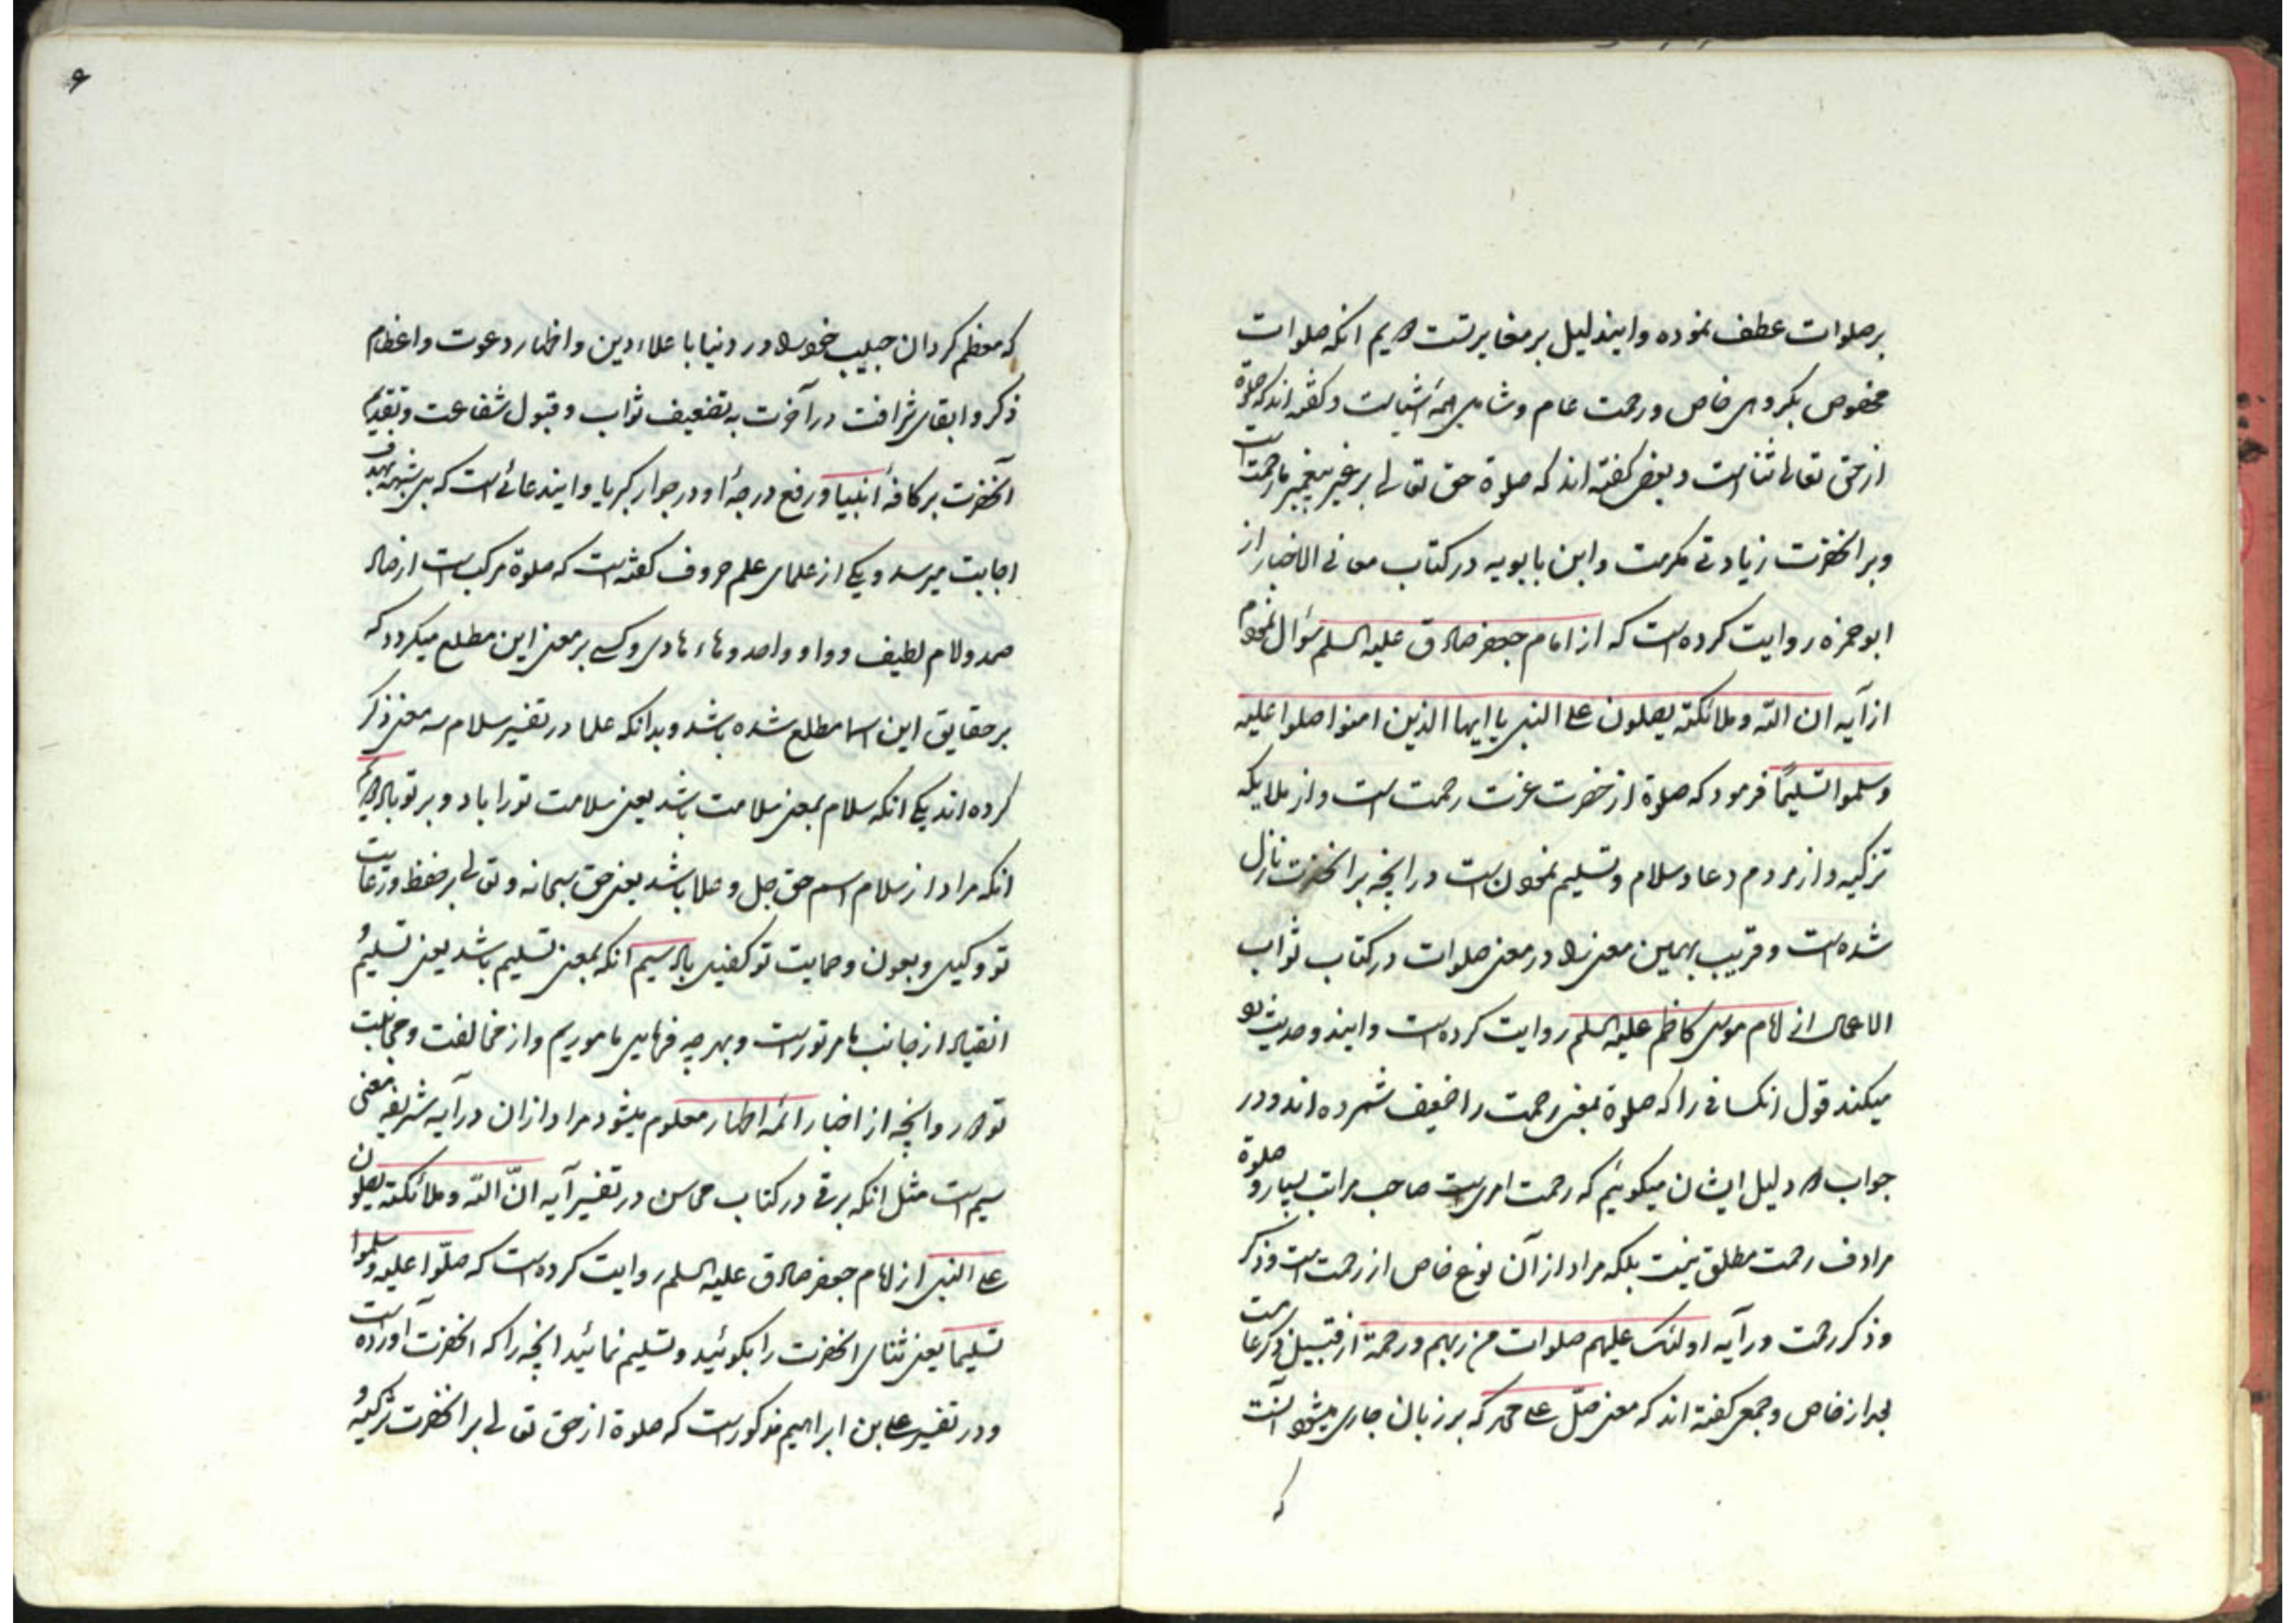 بر صلوات عطف نموده و ایندلیل بر مغایرتست سیم انکه صلوات
مخصوص بگروهی خاص و رحمت عام و شامل همه اشیاست و گفته اند که صلوة
از حق تعالی ثنا است و بعضی گفته اند که صلوة حق تعالی بر غیر پیغمبر ما رحمت است
و بر انحضرت زیادتی مکرمت و ابن بابویه در کتاب معانی الاخبار از
ابو حمزه روایت کرده است که از امام جعفر صادق علیه السلم سؤال نمودم
از آیه ان الله و ملائکته یصلون علی النبی یا ایها الذین امنوا صلوا علیه
و سلموا تسلیمًا فرمود که صلوة از حضرت عزت رحمت است و از ملایکه
تزکیه و از مردم دعا و سلام و تسلیم نمودن است در انچه بر انحضرت نازل
شده است و قریب بهمین معنی را در معنی صلوات در کتاب ثواب
الاعمال از امام موسی کاظم علیه السلم روایت کرده است و ایندو حدیث رد
میکند قول انکسانی را که صلوة بمعنی رحمت را ضعیف شمرده اند و در
جواب دلیل ایشان میگوئیم که رحمت امری است صاحب مراتب بسیار و صلوة
مرادف رحمت مطلق نیست بلکه مراد از آن نوع خاص از رحمت است و ذکر
و ذکر رحمت در آیه اولئک علیهم صلوات من ربهم و رحمة از قبیل ذکر عامست
بعد از خاص و جمعی گفته اند که معنی صلّ علی محمد که بر زبان جاری میشود آنست
که
۶
که معظم گردان حبیب خود را در دنیا با علاء دین و اظهار دعوت و اعظام
ذکر و ابقای شرافت در آخرت به تضعیف ثواب و قبول شفاعت و تقدیم
آنحضرت بر کافهٔ انبیا و رفع درجهٔ او در جوار کبریا و ایندعائی است که بی شبهه بهدف
اجابت میرسد و یکی از علمای علم حروف گفته است که صلوة مرکب است از صاد
صمد و لام لطیف و واو واحد و هاء هادی و کسی بر معنی این مطلع میگردد که
بر حقایق این اسما مطلع شده باشد و بدانکه علما در تفسیر سلام سه معنی ذکر
کرده اند یکی انکه سلام بمعنی سلامت باشد یعنی سلامت تو را باد و بر تو باد دویم
انکه مراد از سلام اسم حق جل و علا باشد یعنی حق سبحانه و تعالی بر حفظ و رعایت
تو وکیل و بعون و حمایت تو کفیل باد سیم انکه بمعنی تسلیم باشد یعنی تسلیم و
انقیاد از جانب ما مر تو راست و بهر چه فرمایی ماموریم و از مخالفت و مجانبت
تو دور و انچه از اخبار ائمه اطهار معلوم میشود مراد از ان در آیه شریفه معنی
سیم است مثل انکه برقی در کتاب محاسن در تفسیر آیه انّ الله و ملائکته یصلون
علی النبی از امام جعفر صادق علیه السلم روایت کرده است که صلّوا علیه و سلموا
تسلیما یعنی ثنای انحضرت را بگوئید و تسلیم نمائید انچه را که انحضرت آورده است
و در تفسیر علی بن ابراهیم مذکور است که صلوة از حق تعالی بر انحضرت تزکیه و